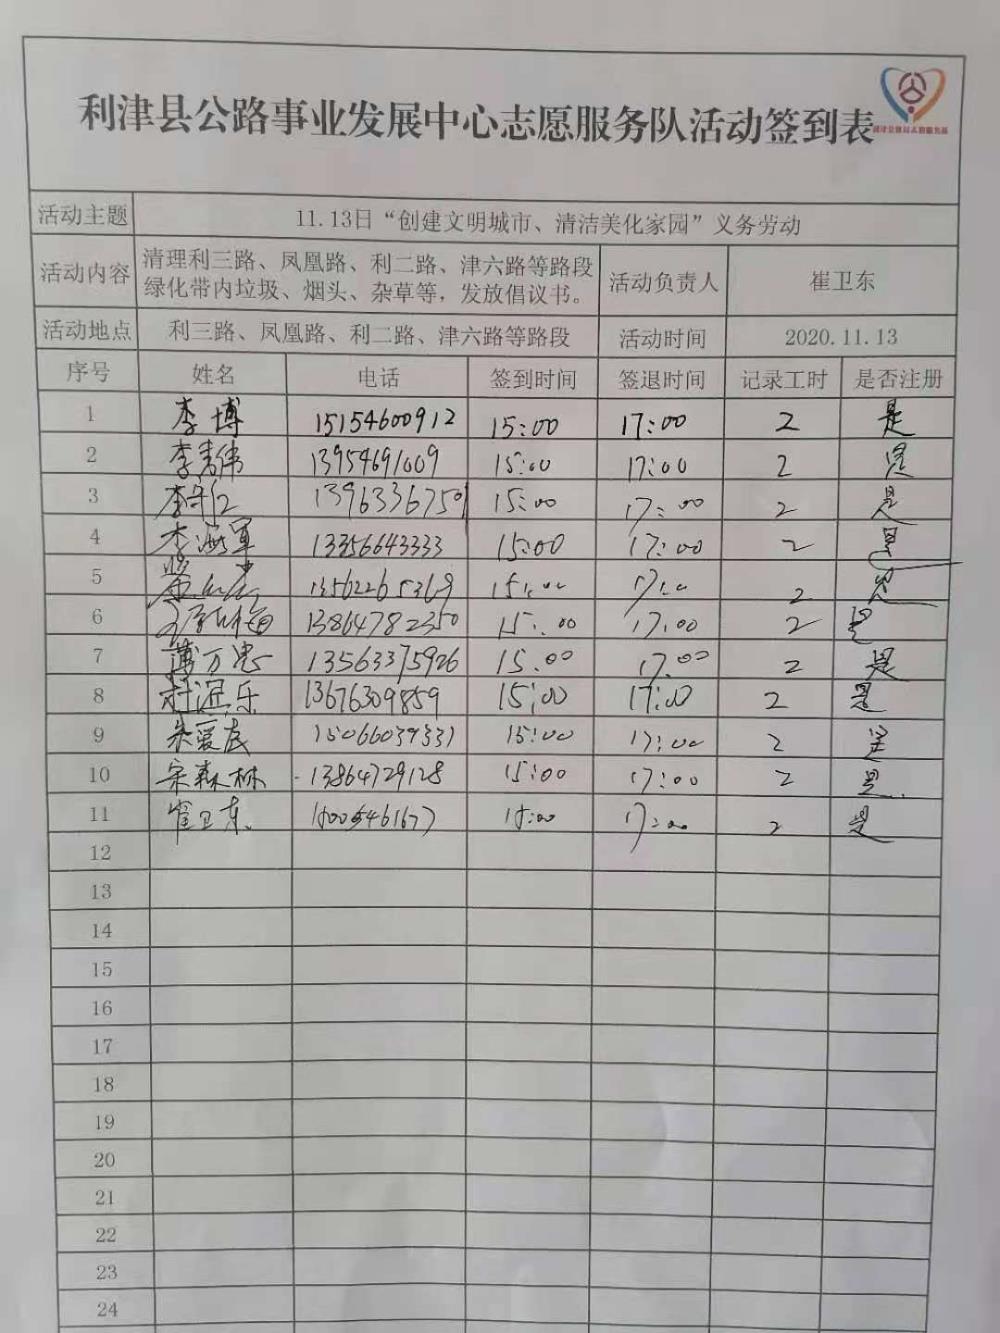 利津县公路事业发展中心志愿服务队活动签到表
活动主题 11.13日“创建文明城市、清洁美化家园”义务劳动
活动内容 清理利三路、凤凰路、利二路、津六路等路段
绿化带内垃圾、烟头、杂草等，发放倡议书。 活动负责人 崔卫东
活动地点 利三路、凤凰路、利二路、津六路等路段 活动时间 2020.11.13
序号 姓名 电话 签到时间 签退时间 记录工时 是否注册
1 李博 15154600912 15:00 17:00 2 是
2 李春伟 13954691009 15:00 17:00 2 是
3 13963367501 15:00 17:00 2 是
4 李海军 13356643333 15:00 17:00 2 是
5 13562265369 15:00 17:00 2 是
6 13864782350 15:00 17:00 2 是
7 薄万忠 13563375926 15:00 17:00 2 是
8 13676309859 15:00 17:00 2 是
9 15066039331 15:00 17:00 2 是
10 宋森林 13864729128 15:00 17:00 2 是
11 崔卫东 15:00 17:00 2 是
12
13
14
15
16
17
18
19
20
21
22
23
24